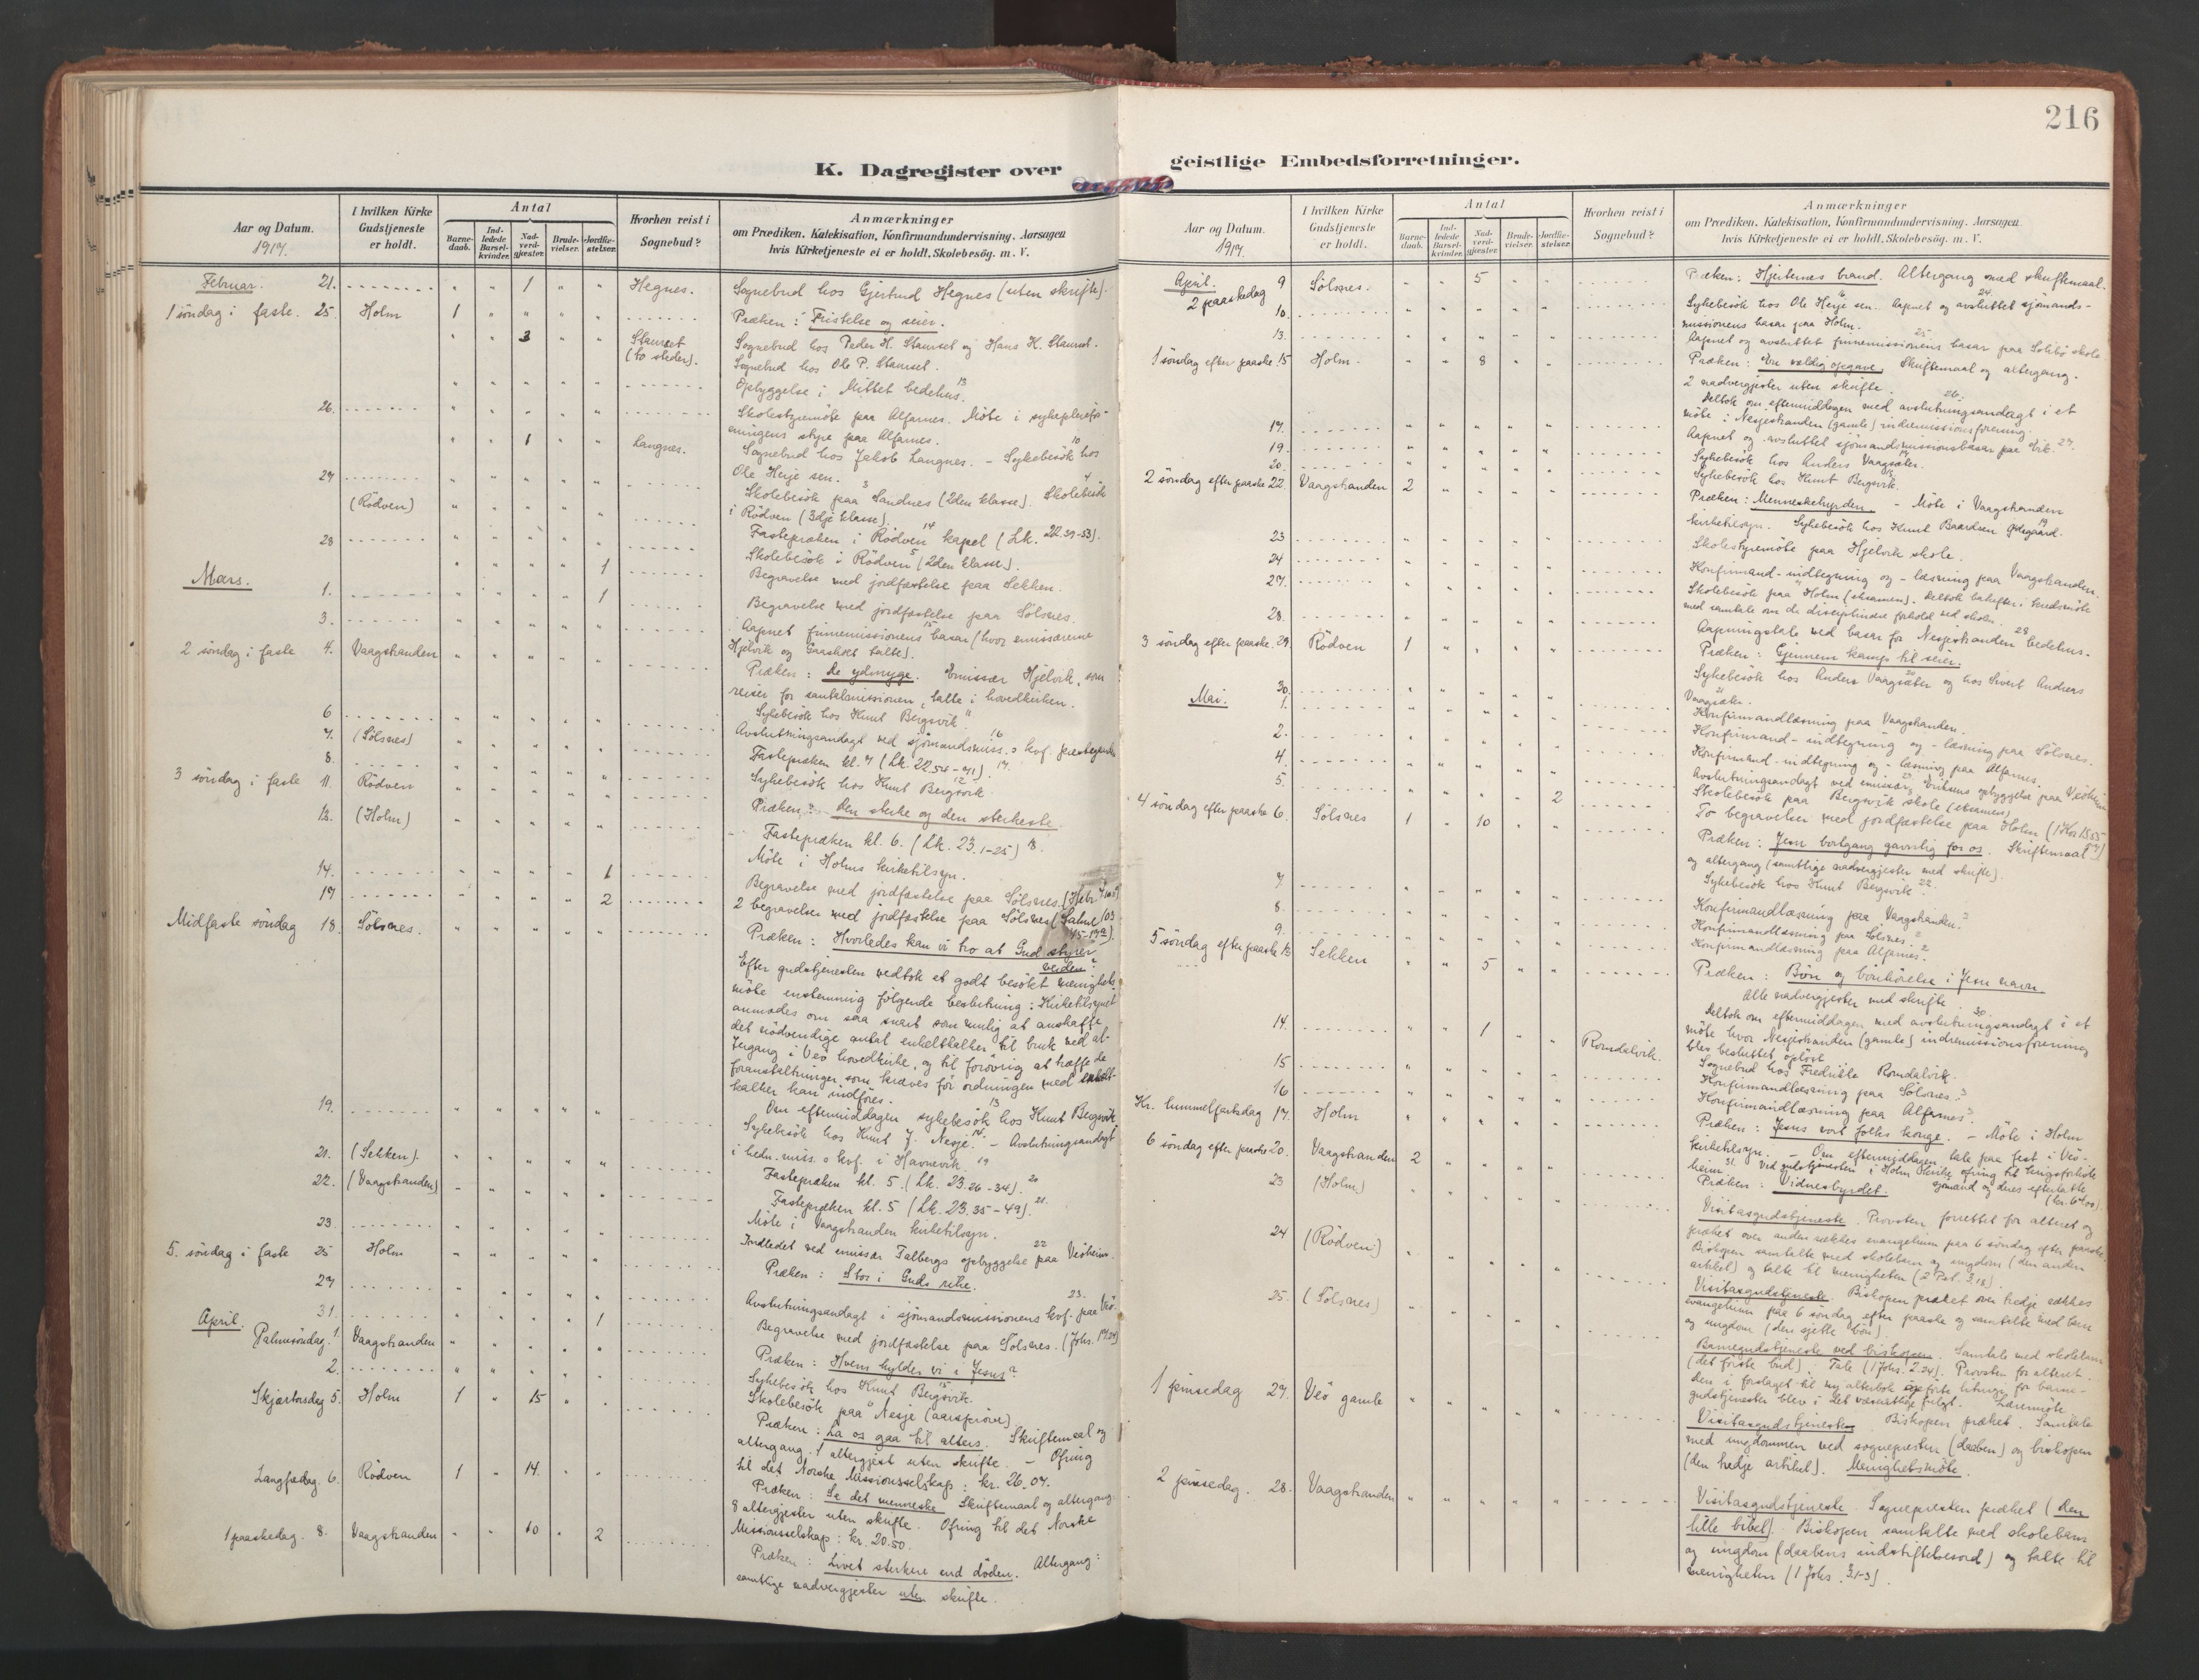 216
K. Dagregister over
geistlige Embedsforretninger.
Aar og Datum.
1917.
I hvilken Kirke
Gudstjeneste
er holdt.
Antal
Barne-
daab.
Ind-
ledede
Barsel-
kvinder.
Nad-
verd-
gjester.
Brude-
vielser.
Jordfæ-
stelser.
Hvorhen reist i
Sognebud?
Anmærkninger
om Prædiken. Katekisation, Konfirmandundervisning. Aarsagen
hvis Kirketjeneste ei er holdt. Skolebesøg. m. V.
Februar. 21. 1 Hegnes. Sognebud hos Gjertrud Hegnes (uten skrifte).
1 söndag i faste. 25. Holm 1 Præken: Fristelse og seier.
3 Staurset (to steder). Sognebud hos Peder H. Staurset og Hans K. Staurset.
Sognebud hos Ole P. Staurset.
Opbyggelse i Mittet bedehus. 13
26. Skolestyremöte paa Alfarnes. Möte i sykepleiefor-
eningens styre paa Alfarnes.
1 Langnes. Sognebud hos Jakob Langnes. – Sykebesök hos 10
Ole Herje sen.
27 Skolebesök paa Sandnes (2den klasse). Skolebesök 4
i Rödven (3dje klasse).
(Rödven) Fastepræken i Rödven kapel (Lk. 22.39-53). 14
28 Skolebesök i Rödven (2den klasse). 5
Mars. 1. 1 Begravelse med jordfæstelse paa Sekken.
3. 1 Begravelse med jordfæstelse paa Sölsnes.
Aapnet finnemissionens basar (hvor emissærerne 15
Hjelvik og Gaasholt talte).
2 söndag i faste 4. Vaagstranden Præken: De ydmyge. Emissær Hjelvik, som
reiser for santalmissionen, talte i hovedkirken.
6 Sykebesök hos Knut Bergsvik. 11
7. (Sölsnes) Avslutningsandagt ved sjömandsmiss.s kvf. prestegaarden 16
Fastepræken kl. 7 (Lk. 22.54-71). 17.
8. Sykebesök hos Knut Bergsvik. 12
3 söndag i faste 11. Rödven Præken: Den sterke og den sterkeste.
13. (Holm) Fastepræken kl. 6. (Lk. 23.1-25) 18.
Möte i Holms kirketilsyn.
14. 1 Begravelse med jordfæstelse paa Sölsnes. (Hebr.
17 2 2 begravelser med jordfæstelse paa Sölsnes (Salme 103
15-17a).
Midfaste söndag 18. Sölsnes. Præken: Hvorledes kan vi tro at Gud styrer
verden?
Efter gudstjenesten vedtok et godt besökt menighets-
möte enstemmig fölgende beslutning: Kirketilsynet
anmodes om saa snart som mulig at anskaffe
det nödvendige antal enkeltkalker til bruk ved al-
tergang i Veö hovedkirke, og til forövrig at træffe de
foranstaltninger, som kræves for ordningen med enkelt-
kalker kan indföres.
Om eftermiddagen sykebesök hos Knut Bergsvik 13
19. Sykebesök hos Knut J. Nesje. – Avslutningsandagt 14.
i hedn.miss.s kvf. i Havnevik. 19
21. (Sekken). Fastepræken kl. 5. (Lk. 23.26-34). 20
22. (Vaagstranden) Fastepræken kl. 5 (Lk. 23.35-49). 21.
23. Möte i Vaagstranden kirketilsyn.
Indledet ved emissær Talbergs opbyggelse paa Veöheim. 22
5. söndag i faste 25 Holm Præken: Stor i Guds rike.
27 Avslutningsandagt i sjömandsmissionens kvf. paa Veö. 23.
31. 1 Begravelse med jordfæstelse paa Sölsnes. (Johs. 17.24)
April. Palmesöndag. 1. Vaagstranden Præken: Hvem hylder vi i Jesus?
2. Sykebesök hos Knut Bergsvik. 15
Skolebesök paa Nesje (aarspröve).
Skjærtorsdag 5. Holm 1 15 Præken: La os gaa til alters. Skriftemaal og
altergang. 1 altergjest uten skrifte. – Ofring
til det Norske Missionsselskap: kr. 26.07.
Langfredag. 6. Rödven 1 14. Præken: Se det menneske. Skriftemaal og altergang.
8 altergjester uten skrifte. Ofring til det Norske
Missionsselskap: kr. 20.50.
1 paaskedag. 8. Vaagstranden 10 2 Præken: Livet sterkere end döden. Altergang:
samtlige nadvergjester uten skrifte.
Aar og Datum.
1917.
I hvilken Kirke
Gudstjeneste
er holdt.
Antal
Barne-
daab.
Ind-
ledede
Barsel-
kvinder.
Nad-
verd-
gjester.
Brude-
vielser.
Jordfæ-
stelser.
Hvorhen reist i
Sognebud?
Anmærkninger
om Prædiken. Katekisation, Konfirmandundervisning. Aarsagen
hvis Kirketjeneste ei er holdt. Skolebesøg. m. V.
April. 9 2 paaskedag Sölsnes. 5 Præken: Hjerternes brand. Altergang med skriftemaal.
10. Sykebesök hos Ole Herje sen. Aapnet og avsluttet sjömands- 24
missionens basar paa Holm.
13. Aapnet og avsluttet finnemissionens basar paa Solbö skole 25
1 söndag efter paaske. 15 Holm. 8 Præken: En vældig opgave. Skriftemaal og altergang.
2 nadvergjester uten skrifte.
Deltok om eftermiddagen med avslutningsandagt i et 26.
möte i Nesjestranden (gamle) indremissionsforening.
17. Aapnet og avsluttet sjömandsmissionsbasar paa Vik. 27.
19. Sykebesök hos Anders Vaagsæter.
20. Sykebesök hos Knut Bergsvik.
2 söndag efter paaske 22. Vaagstranden 2 Præken: Menneskehyrden. – Möte i Vaagstranden
kirketilsyn. Sykebesök hos Knut Baardsen Ödegaard. 19
23 Skolestyremöte paa Hjelvik skole.
24 Konfirmand-indtegning og -læsning paa Vaagstranden.
27. Skolebesök paa Holm (eksamen). Deltok bakefter i kredsmöte
med samtale om de disciplinære forhold ved skolen.
28. Aapningstale ved basar for Nesjestranden bedehus. 28
3 söndag efter paaske. 29. Rödven 1 Præken: Gjennem kamp til seier.
30. Sykebesök hos Anders Vaagsæter og hos Sivert Andreas 20
Vaagsæter. 21
Mai. 1. Konfirmandlæsning paa Vaagstranden.
2. Konfirmand-indtegning og -læsning paa Sölsnes.
4. Konfirmand-indtegning og -læsning paa Alfarnes.
Avslutningsandagt ved emissær Eriksens opbyggelse paa Veöheim
5. Skolebesök paa Bergsvik skole (eksamen)
2 To begravelser med jordfæstelse paa Holm (1 Kor. 15.55
4 söndag efter paaske 6. Sölsnes 1 10 Præken: Jesu bortgang gavnlig for os. Skriftemaal
og altergang (samtlige nadvergjester med skrifte).
Sykebesök hos Knut Bergsvik. 22
7. Konfirmandlæsning paa Vaagstranden. 2
8. Konfirmandlæsning paa Sölsnes. 2
9. Konfirmandlæsning paa Alfarnes. 2
5 söndag efter paaske 13 Sekken 5 Præken: Bön og bönhörelse i Jesu navn.
Alle nadvergjester med skrifte.
Deltok om eftermiddagen med avslutningsandagt i et 30
möte hvor Nesjestranden (gamle) indremissionsforening
blev besluttet oplöst.
14. 1 Romdalsvik. Sognebud hos Fredrikke Romdalsvik.
15 Konfirmandlæsning paa Sölsnes. 3
16 Konfirmandlæsning paa Alfarnes. 3
Kr. himmelfartsdag 17. Holm Præken: Jesus vort folks konge. – Möte i Holm
kirketilsyn. – Om eftermiddagen tale paa fest i Veö-
heim. 31. Ved gudstjenesten i Holm kirke ofring til krigsforliste
sjömænd og deres efterlatte (kr.
6 söndag efter paaske 20. Vaagstranden 2 Præken: Vidnesbyrdet.
23 (Holm) Visitasgudstjeneste. Provsten forrettet for alteret og
præket over anden rækkes evangelium paa 6 söndag efter paaske.
Biskopen samtalte med skolebarn og ungdom (den anden
artikel) og talte til menigheten (2 Pet. 3.18).
24 (Rödven) Visitasgudstjeneste. Biskopen præket over tredje rækkes
evangelium paa 6 söndag efter paaske og samtalte med barn
og ungdom (den sjette bön).
25. (Sölsnes) Barnegudstjeneste ved biskopen. Samtale med skolebarn
(det förste bud). Tale (1 Johs. 2.24). Provsten for alteret.
Den i forslaget til ny alterbok opförte liturgi for barne-
gudstjenester blev i det væsentlige fulgt. Læremöte.
1 pinsedag 27. Veö gamle Visitasgudstjeneste. Biskopen præket. Samtale
med ungdommen ved sognepresten (daaben) og biskopen
(den tredje artikel). Menighetsmöte.
2 pinsedag. 28. Vaagstranden Visitasgudstjeneste. Sognepresten præket (den
lille bibel). Biskopen samtalte med skolebarn
og ungdom (daabens indstiftelsesord) og talte til
menigheten (1 Johs. 3.1-3).